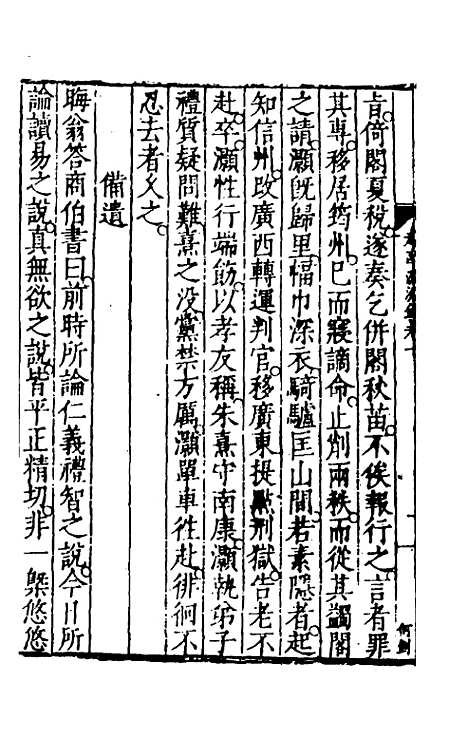 旨倚閣夏稅遂奏乞併閣秋苗不俟報行之言者罪
其專移居筠州巳而寢謫命止削兩秩而從其蠲閣
之請灝旣歸里幅巾深衣騎驢匡山間若素隱者起
知信州改廣西轉運判官移廣東提㸃刑獄告老不
赴卒灝性行端飭以孝友稱朱熹守南康灝執弟子
禮質疑問難熹之没黨禁方厲灝單車徃赴徘徊不
忍去者久之
備遺
晦翁答商伯書曰前時所論仁義禮智之說今日所
論讀易之說真無欲之說皆平正精切非一槩悠悠